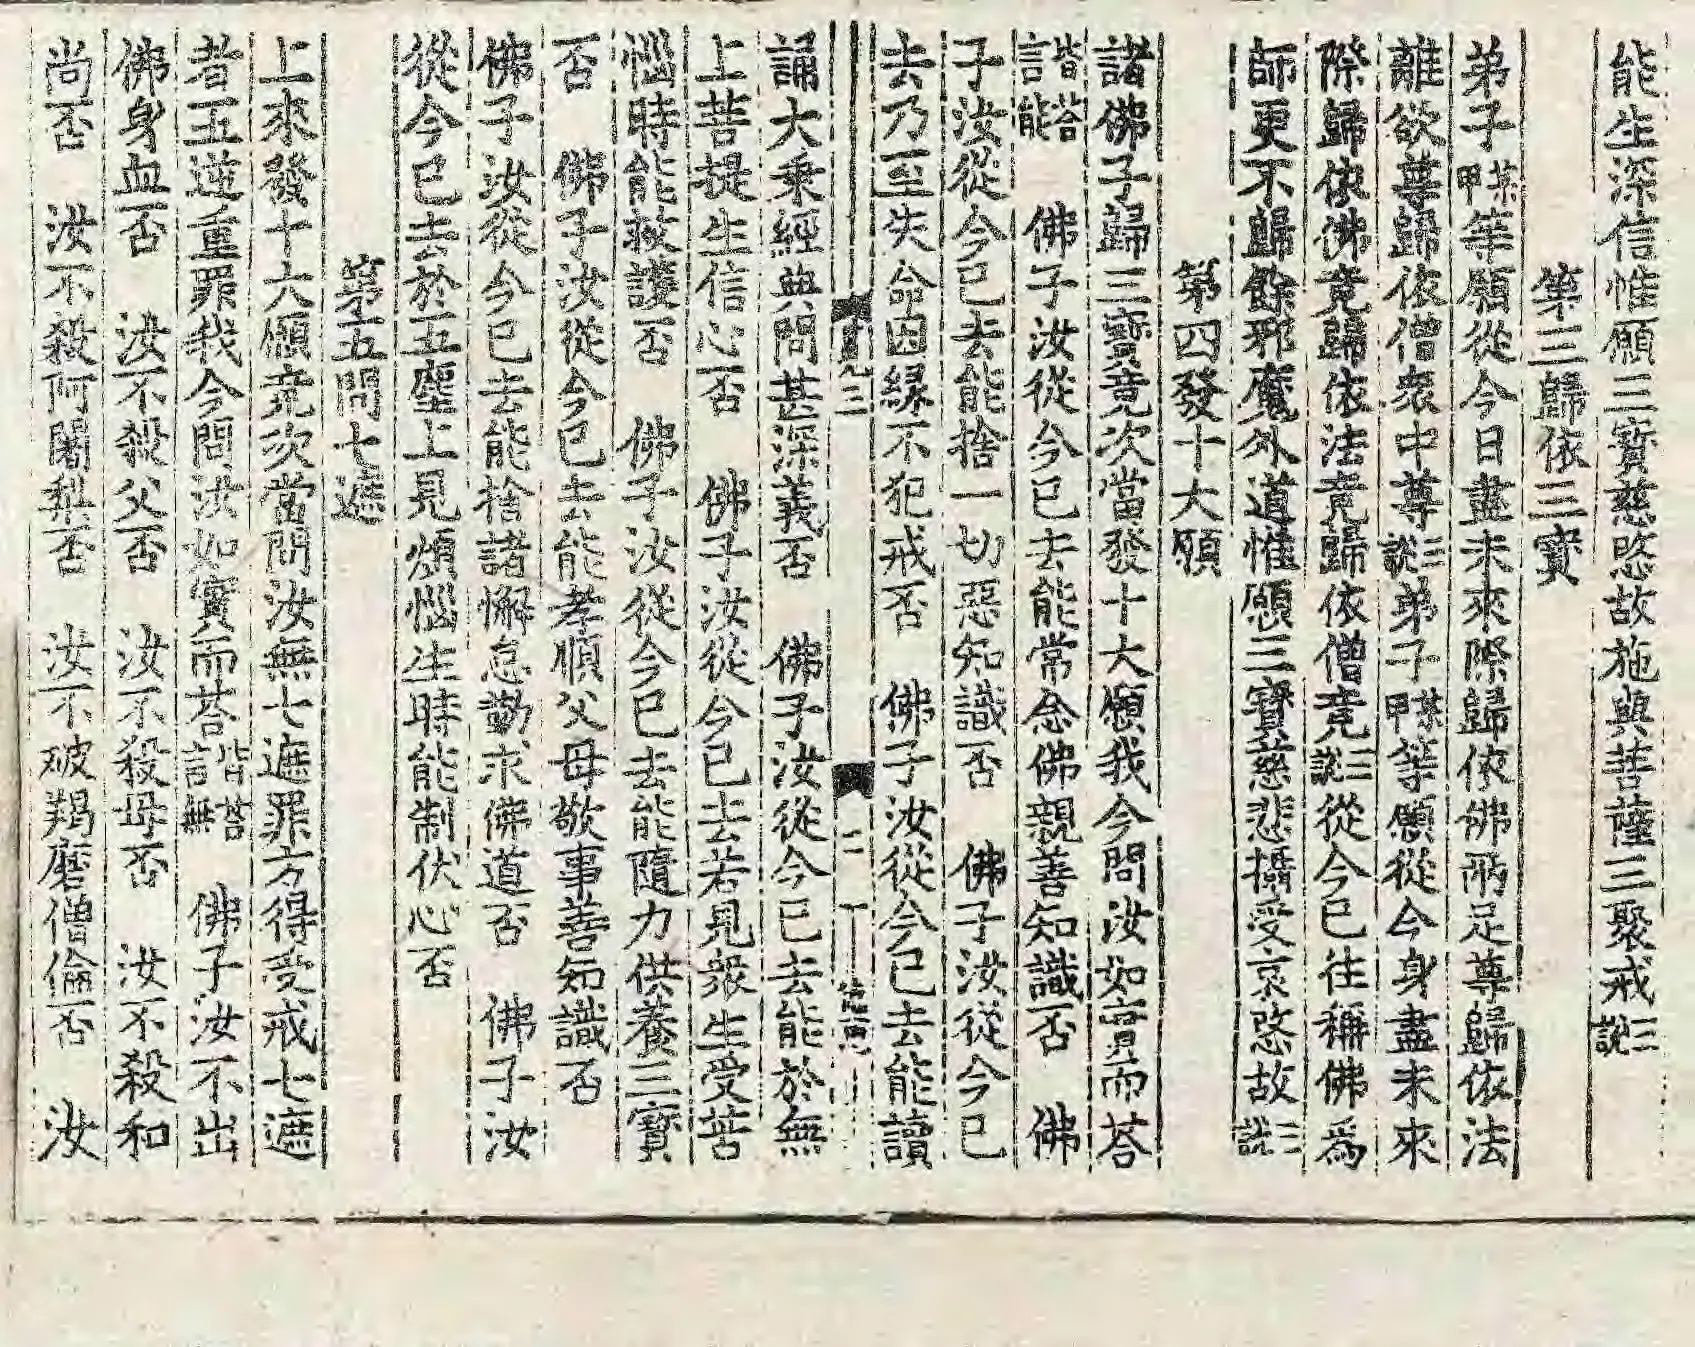 能生深信惟願三寶慈愍故施與菩薩三聚戒三說
第三歸依三寶
弟子某甲等願從今日盡未來際歸依佛兩足尊歸依法
離欲尊歸依僧衆中尊三說弟子某甲等願從今身盡未來
際歸依佛竟歸依法竟歸依僧竟三說從今已往稱佛爲
師更不歸餘邪魔外道惟願三寶慈悲攝受哀愍故三說
第四發十大願
諸佛子歸三寶竟次當發十大願我今問汝如實而荅
皆荅言能 佛子汝從今已去能常念佛親善知識否 佛
子汝從今已去能捨一切惡知識否 佛子汝從今已
去乃至失命因緣不犯戒否 佛子汝從今已去能讀
三 二
誦大乘經典問甚深義否 佛子汝從今已去能於無
上菩提生信心否 佛子汝從今已去若見衆生受苦
惱時能救護否 佛子汝從今已去能隨力供養三寶
否 佛子汝從今已去能孝順父母敬事善知識否
佛子汝從今已去能捨諸懈怠勤求佛道否 佛子汝
從今已去於五塵上見煩惱生時能制伏心否
第五問七遮
上來發十大願竟次當問汝無七遮罪方得受戒七遮
者五逆重罪我今問汝如實而荅皆荅言無 佛子汝不出
佛身血否 汝不殺父否 汝不殺母否 汝不殺和
尚否 汝不殺阿闍梨否 汝不破羯磨僧倫否 汝